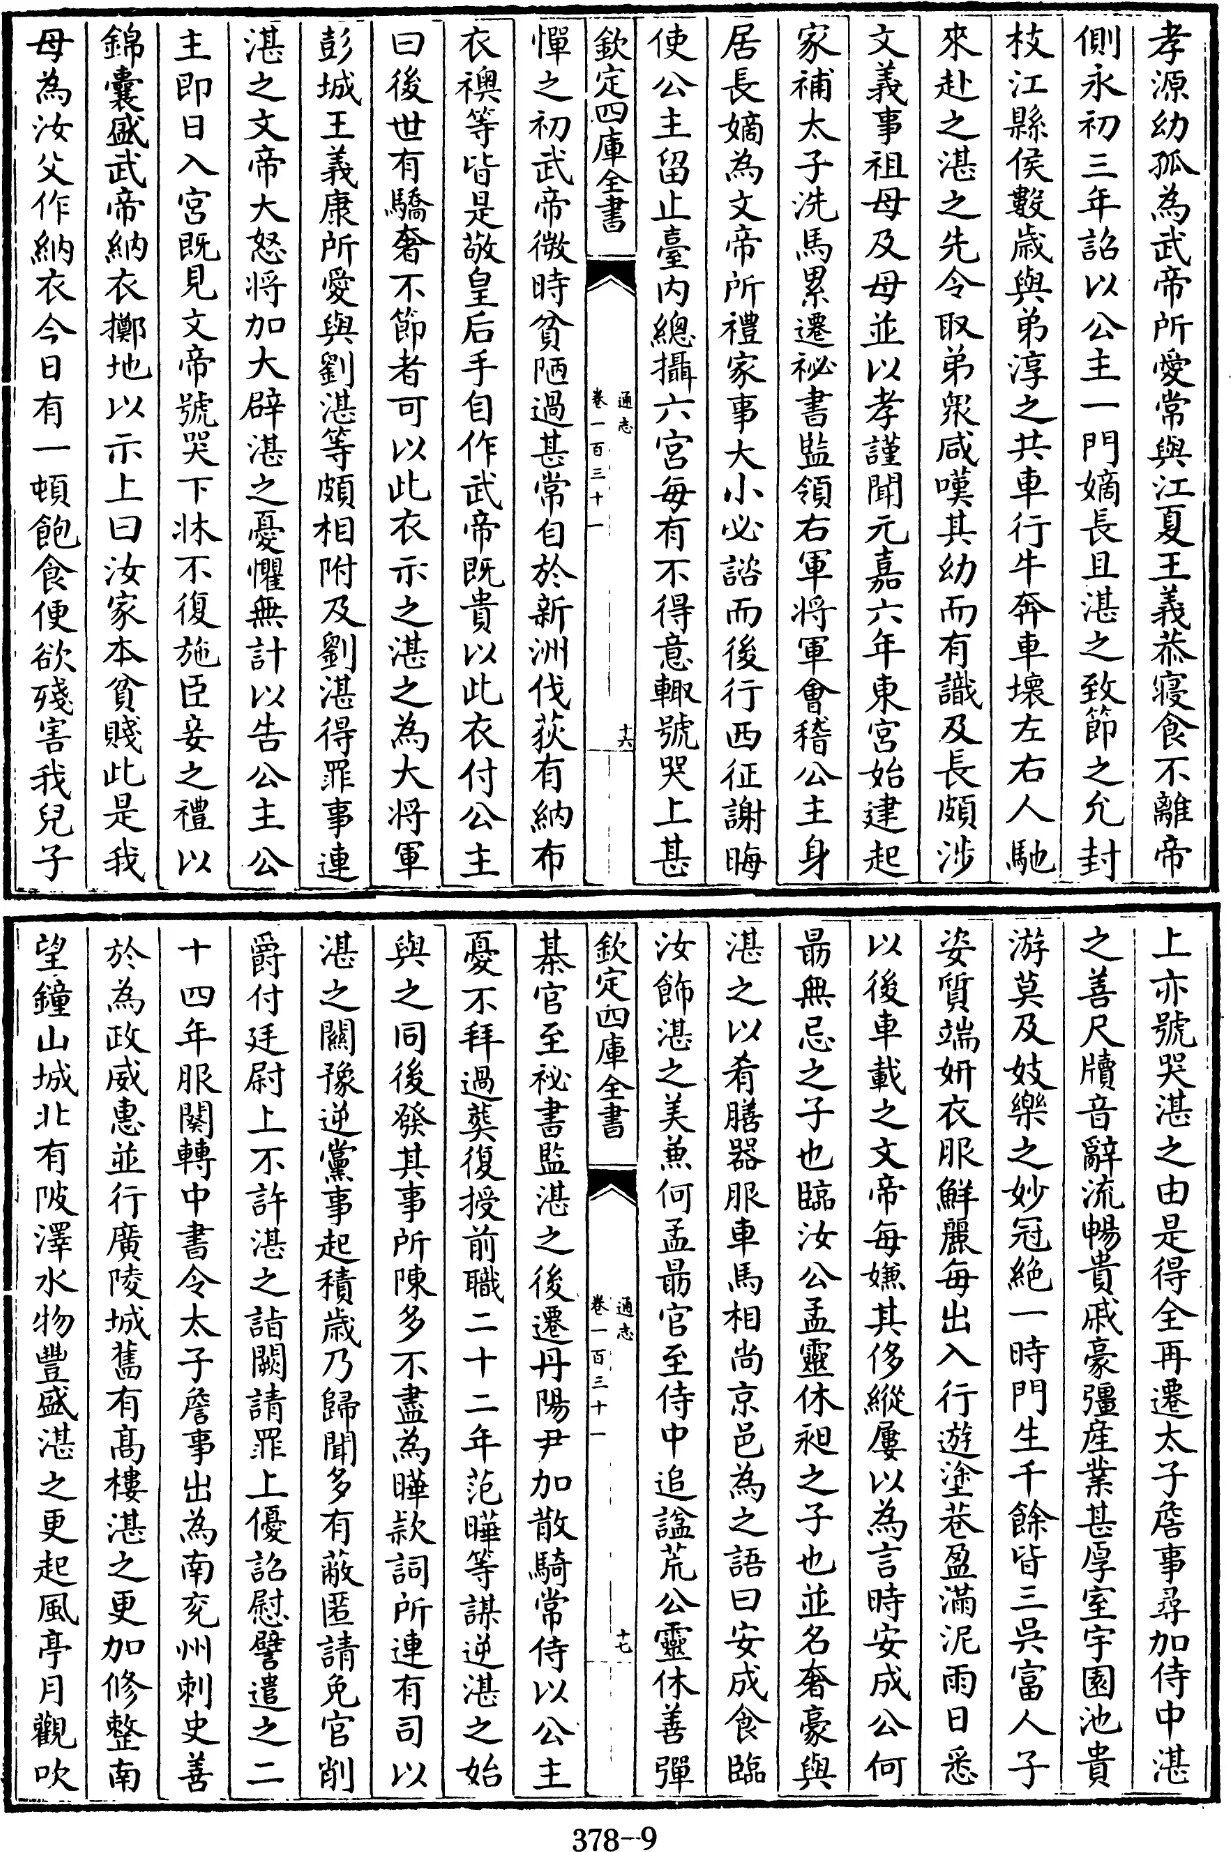 孝源幼孤為武帝所愛常與江夏王義恭寢食不離帝
側永初三年詔以公主一門嫡長且湛之致節之允封
枝江縣侯數歳與弟淳之共車行牛奔車壊左右人馳
來赴之湛之先令取弟衆咸嘆其幼而有識及長頗渉
文義事祖母及母並以孝謹聞元嘉六年東宮始建起
家補太子洗馬累遷祕書監領右軍将軍會稽公主身
居長嫡為文帝所禮家事大小必諮而後行西征謝晦
使公主留止臺内總攝六宮每有不得意輙號哭上甚
欽定四庫全書
通志
卷一百三十一
十六
憚之初武帝微時貧陋過甚常自於新洲伐荻有納布
衣襖等皆是敬皇后手自作武帝既貴以此衣付公主
曰後世有驕奢不節者可以此衣示之湛之為大将軍
彭城王義康所愛與劉湛等頗相附及劉湛得罪事連
湛之文帝大怒将加大辟湛之憂懼無計以告公主公
主即日入宮既見文帝號哭下牀不復施臣妾之禮以
錦囊盛武帝納衣擲地以示上曰汝家本貧賤此是我
母為汝父作納衣今日有一頓飽食便欲殘害我兒子
上亦號哭湛之由是得全再遷太子詹事尋加侍中湛
之善尺牘音辭流暢貴戚豪彊産業甚厚室宇園池貴
游莫及妓樂之妙冠絶一時門生千餘皆三吳富人子
姿質端妍衣服鮮麗每出入行遊塗巷盈滿泥雨日悉
以後車載之文帝每嫌其侈縱屢以為言時安成公何
勗無忌之子也臨汝公孟靈休昶之子也並名奢豪與
湛之以肴膳器服車馬相尚京邑為之語曰安成食臨
汝飾湛之美兼何孟勗官至侍中追諡荒公靈休善彈
欽定四庫全書
通志
卷一百三十一
十七
棊官至祕書監湛之後遷丹陽尹加散騎常侍以公主
憂不拜過葬復授前職二十二年范曄等謀逆湛之始
與之同後發其事所陳多不盡為曄款詞所連有司以
湛之關豫逆黨事起積歳乃歸聞多有蔽匿請免官削
爵付廷尉上不許湛之詣闕請罪上優詔慰譬遣之二
十四年服闋轉中書令太子詹事出為南兖州刺史善
於為政威惠並行廣陵城舊有髙樓湛之更加修整南
望鐘山城北有陂澤水物豐盛湛之更起風亭月觀吹
378-9